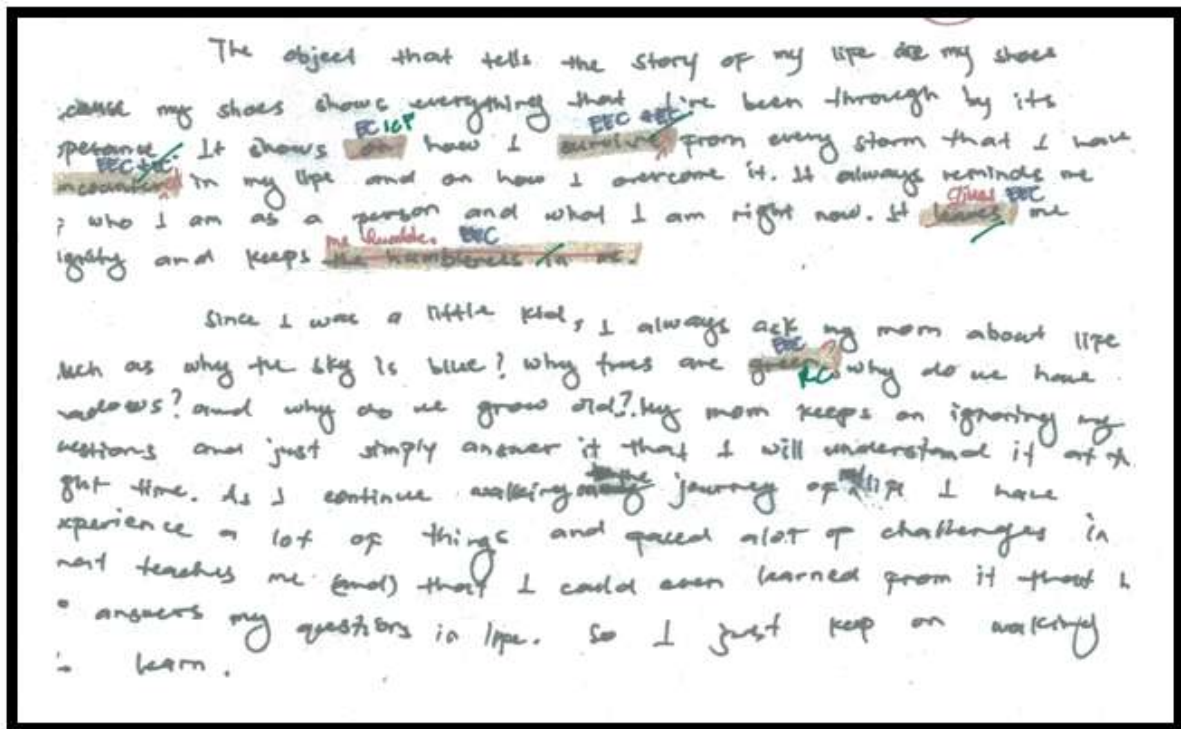 The object that tells the story of my life are my shoes
cause my shoes shows everything that I've been through by its
EC ICP EEC + EC
perance. It shows on how I survive from every storm that I have
EEC + EC
encounter in my life and on how I overcome it. It always reminds me
gives EEC
who I am as a person and what I am right now. It leaves me
me humble. EEC
ignity and keeps the humbleness in me.
Since I was a little kid, I always ask my mom about life
uch as why the sky is blue? why trees are green? why do we have
EEC
RC
adows? and why do we grow old? My mom keeps on ignoring my
estions and just simply answer it that I will understand it at
ght time. As I continue walking the journey of my life I have
xperience a lot of things and faced alot of challenges in
teaches me (and) that I could even learned from it that
answers my questions in life. So I just keep on walking
learn.